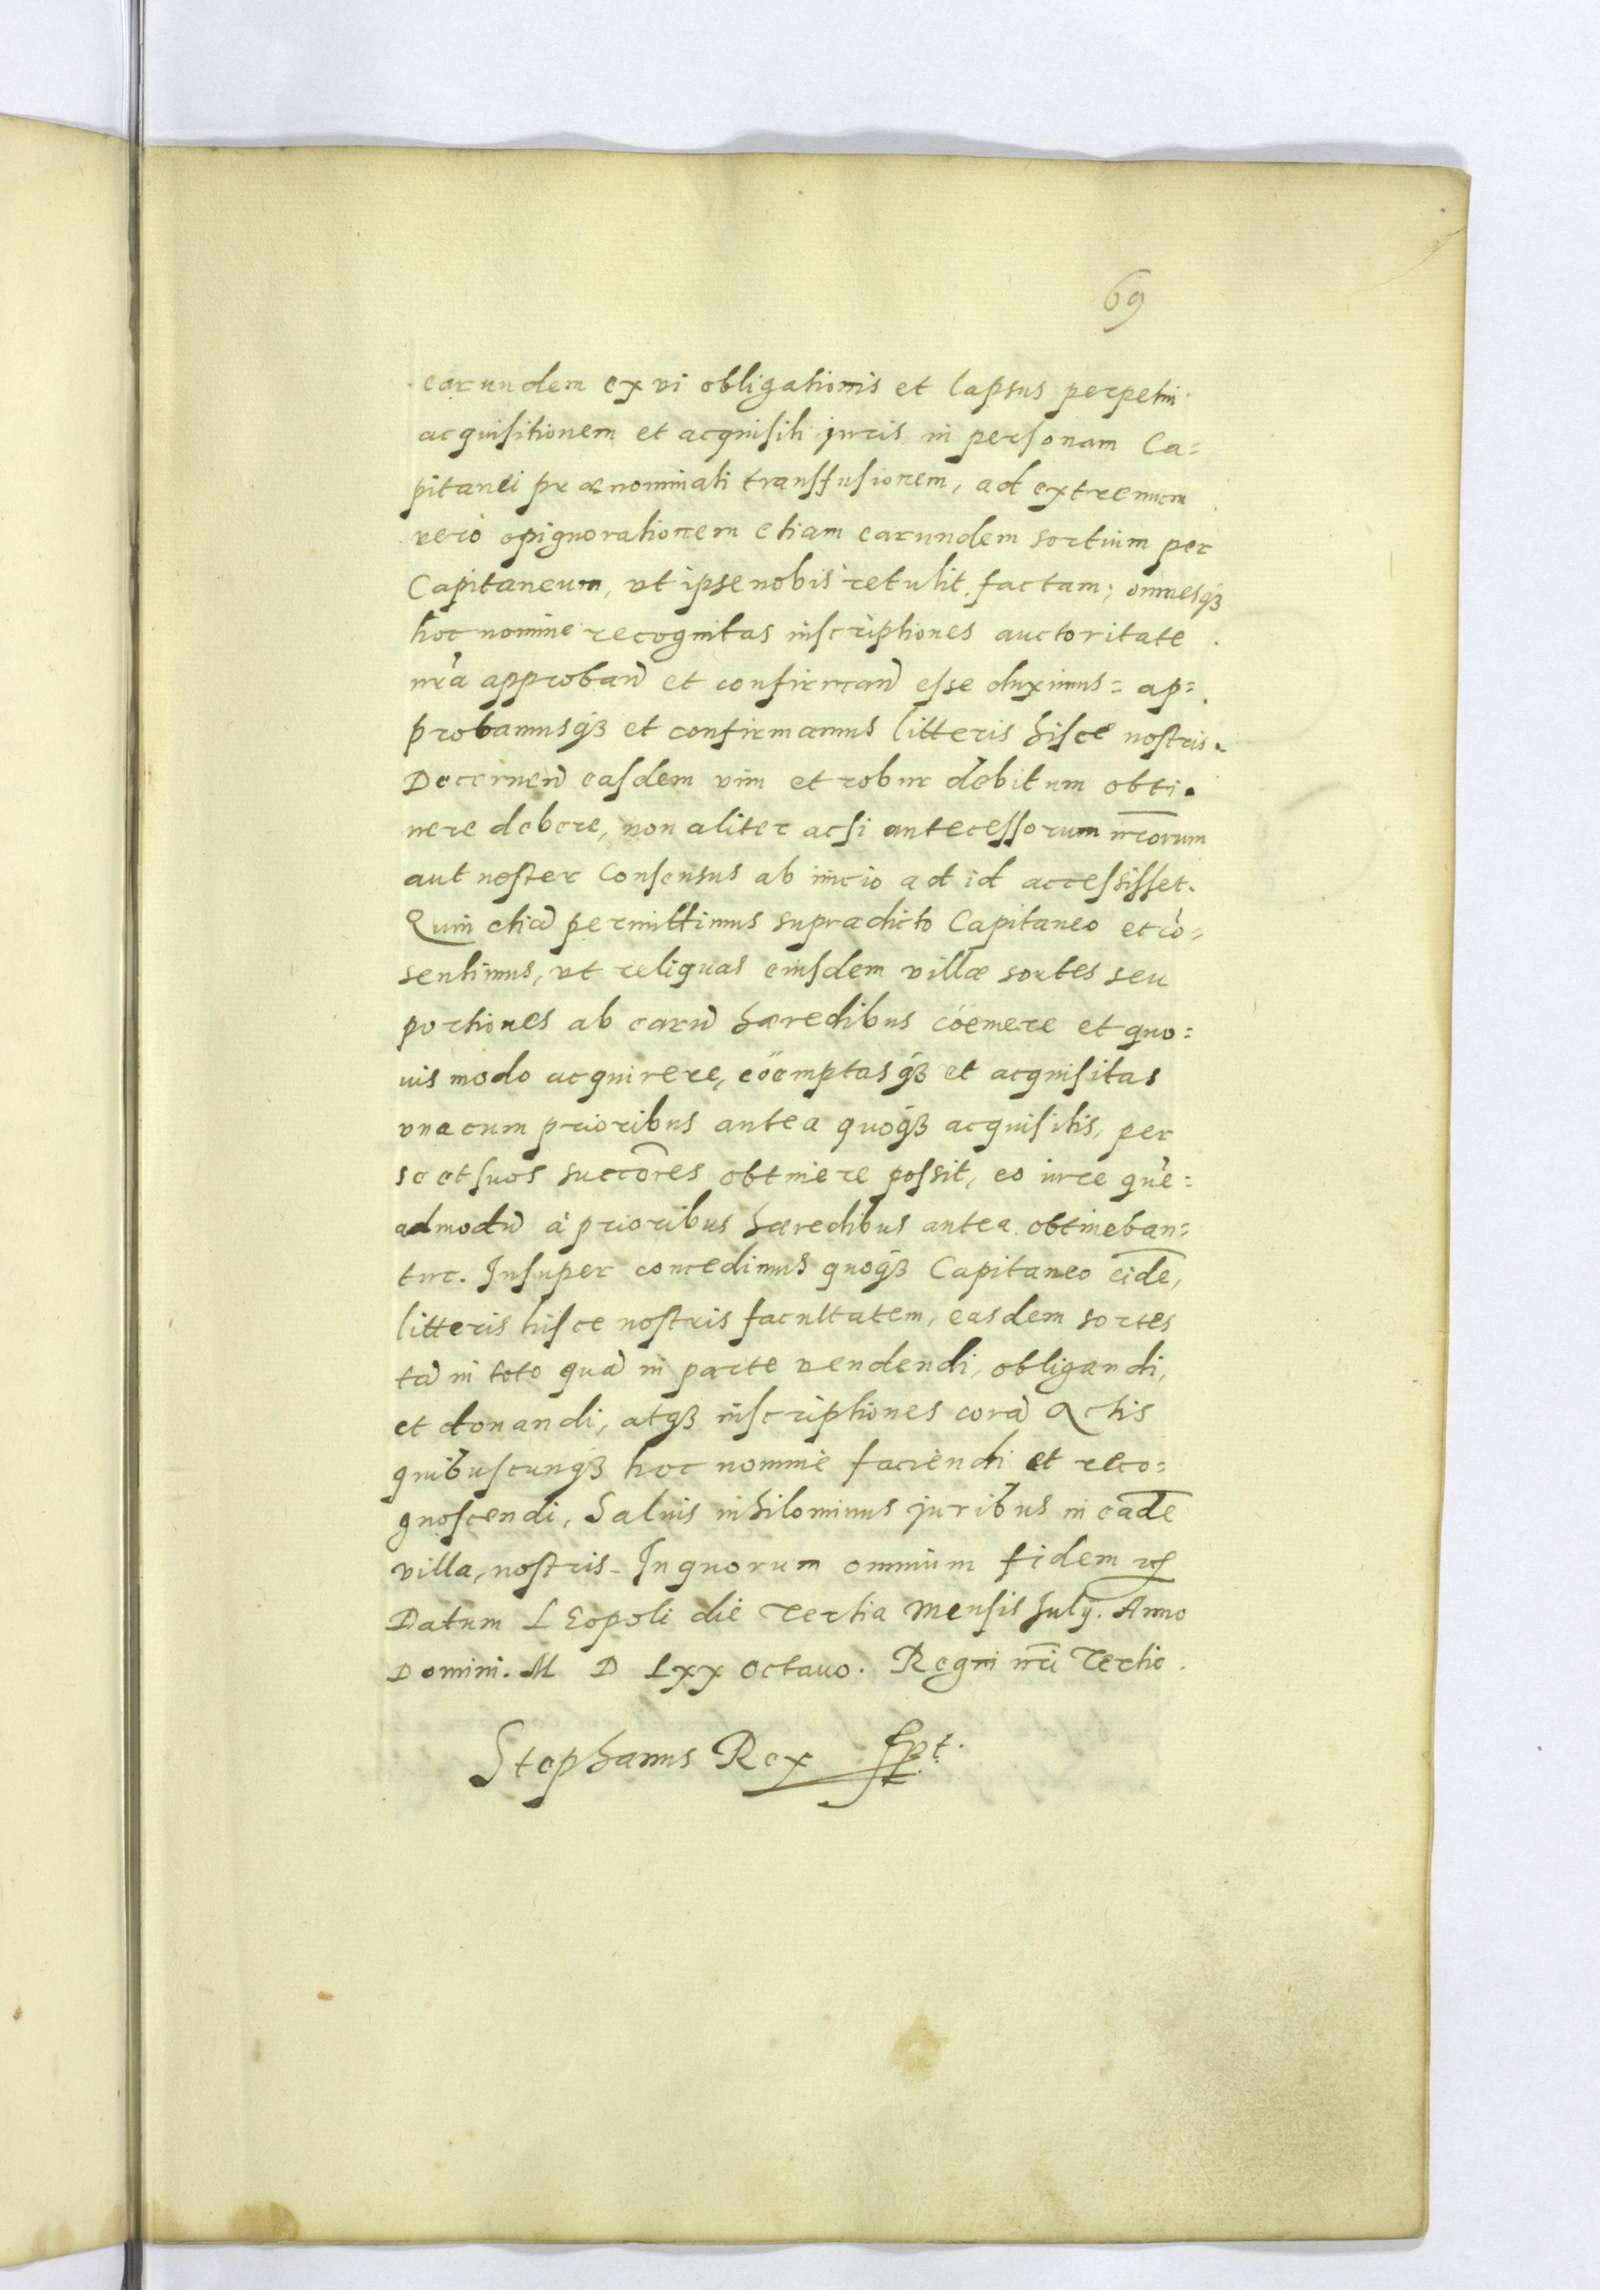 69
earundem ex vi obligationis et lapsus perpetui
acquisitionem et acquisiti juris in personam Ca=
pitanei prænominati transfusionem, ad extremum
vero opignorationem etiam earundem sortium per
Capitaneum, vt ipse nobis retulit factam; omnesq3
hoc nomine recognitas inscriptiones auctoritate
nrā approband̃ et confirmand̃ esse duximus= ap=
probamusq3 et confirmamus litteris hisce nostris.
Decernend̃ easdem vim et robur debitum obti=
nere debere, non aliter acsi antecessorum nr̃orum
aut noster Consensus ab inicio ad id accessisset.
Quin etiā permittimus supradicto Capitaneo et cō=
sentimus, vt reliquas eiusdem villæ sortes seu
portiones ab earū hæredibus cöemere et quo=
uis modo acquirere, cöemptasq3 et acquisitas
vna cum prioribus antea quoq3 acquisitis, per
se et suos succc̃ores obtinere possit, eo iure quē=
admodū à prioribus hæredibus antea obtineban=
tur. Insuper concedimus quoq3 Capitaneo eidē,
litteris hisce nostris facultatem, easdem sortes
tā in toto quā in parte vendendi, obligandi,
et donandi, atq3 inscriptiones corā Actis
quibuscunq3 hoc nomine faciendi et reco=
gnoscendi, Saluis nihilominus juribus in eādē
villa, nostris. In quorum omnium fidem
Datum LEopoli die Tertia Mensis Julÿ. Anno
Domini. M D Lxx octauo. Regni nr̃i Tertio.
Stephanus Rex sspt.